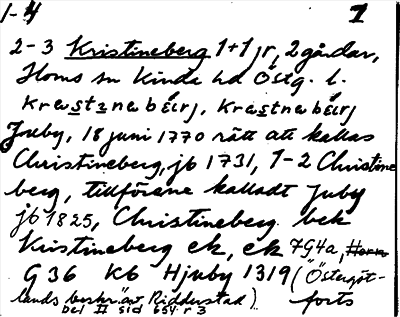 1-4 1
2-3 Kristineberg 1+1 jr, 2 gårdar,
Horns sn Kinda hd Östg. l.
kræstɪnebé̱rj, kræstnebé̱rj
Juby, 18 juni 1770 rätt att kallas
Christineberg, jb 1731, 1-2 Christine
berg, tillförene kalladt Juby
jb 1825, Christineberg bek
Kristineberg ek, ek 7G4a,
G 36 K6 Hjuby 1319 ("Östergöt-
lands beskr" av Ridderstad) forts
del II sid 654 r 3